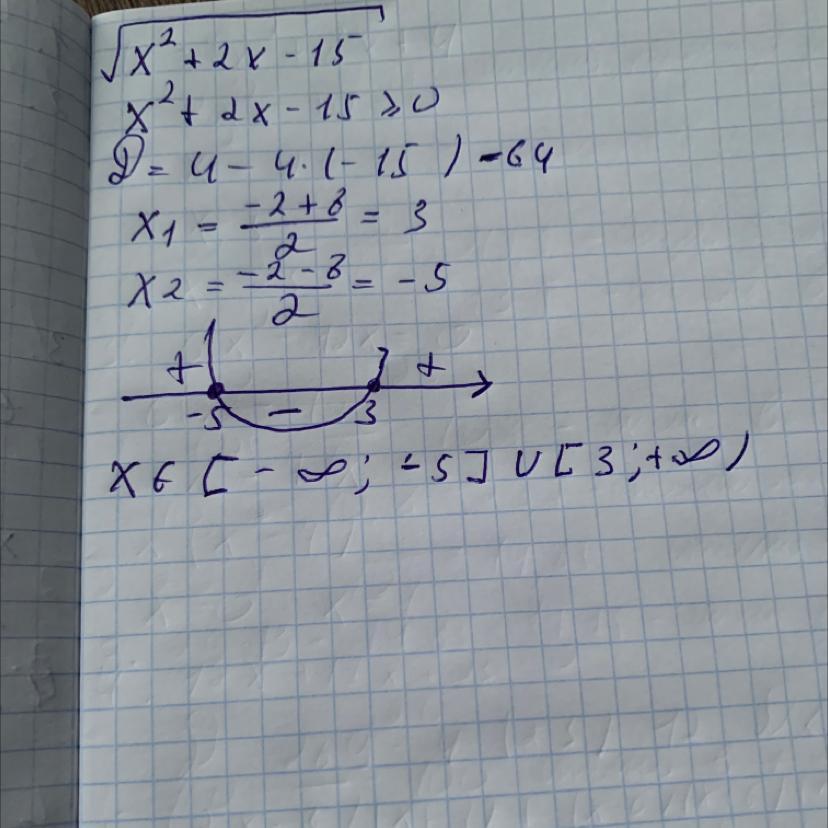 √(x² + 2x - 15)
x² + 2x - 15 ≥ 0
D = 4 - 4·(-15) - 64
x1 = (-2 + 8)/2 = 3
x2 = (-2 - 8)/2 = -5
+ +
-5 - 3
x ∈ [-∞; -5] ∪ [3; +∞)